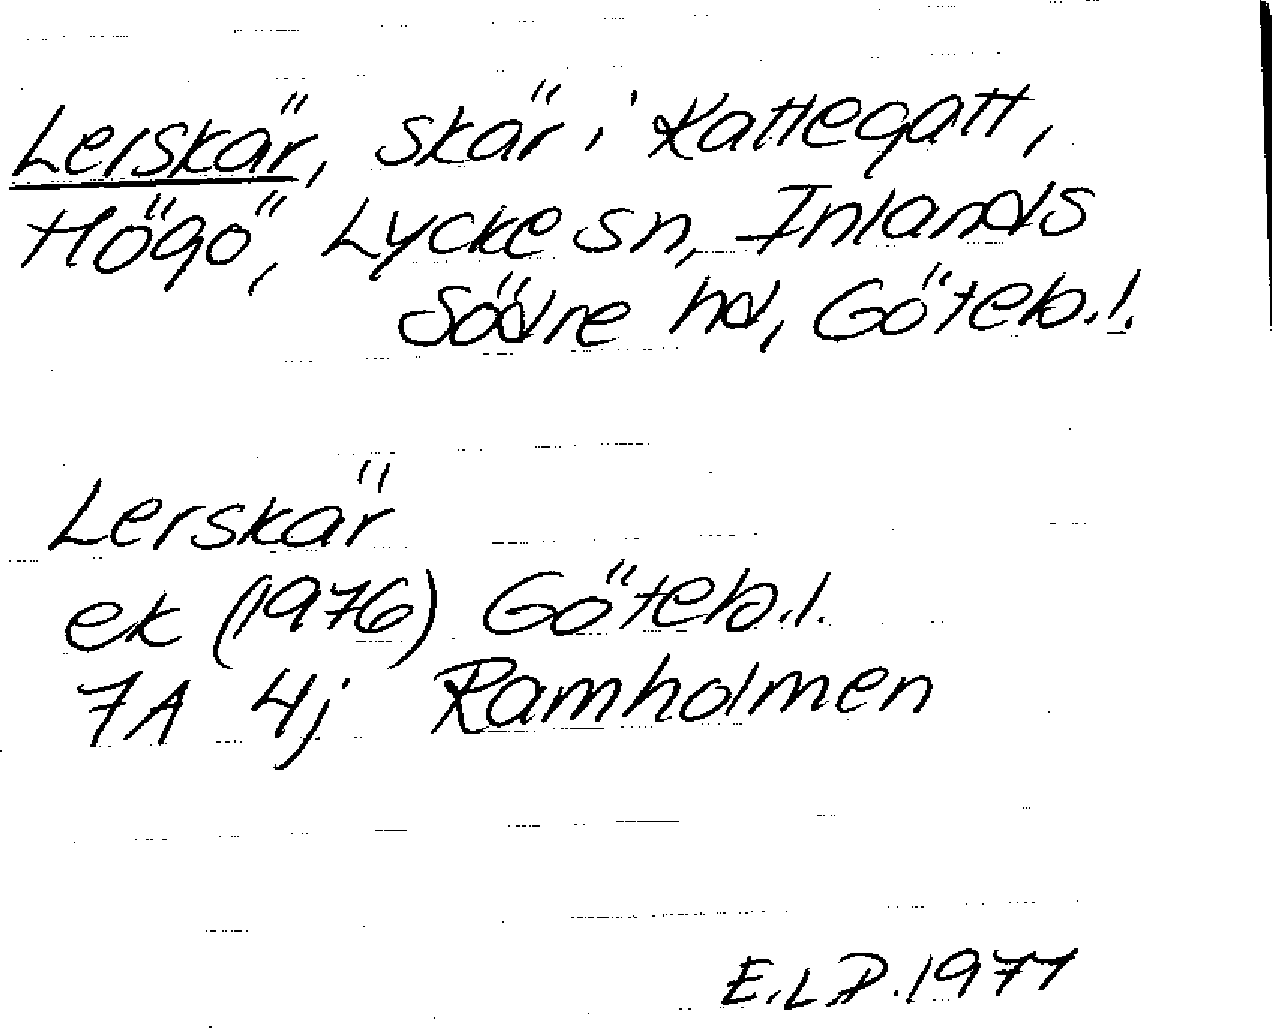 Lerskär, skär i Kattegatt,
Högö, Lycke sn, Inlands
Södre hd, Göteb.l.
Lerskär
ek (1976) Göteb.l.
7A 4j Ramholmen
E.L.D. 1977